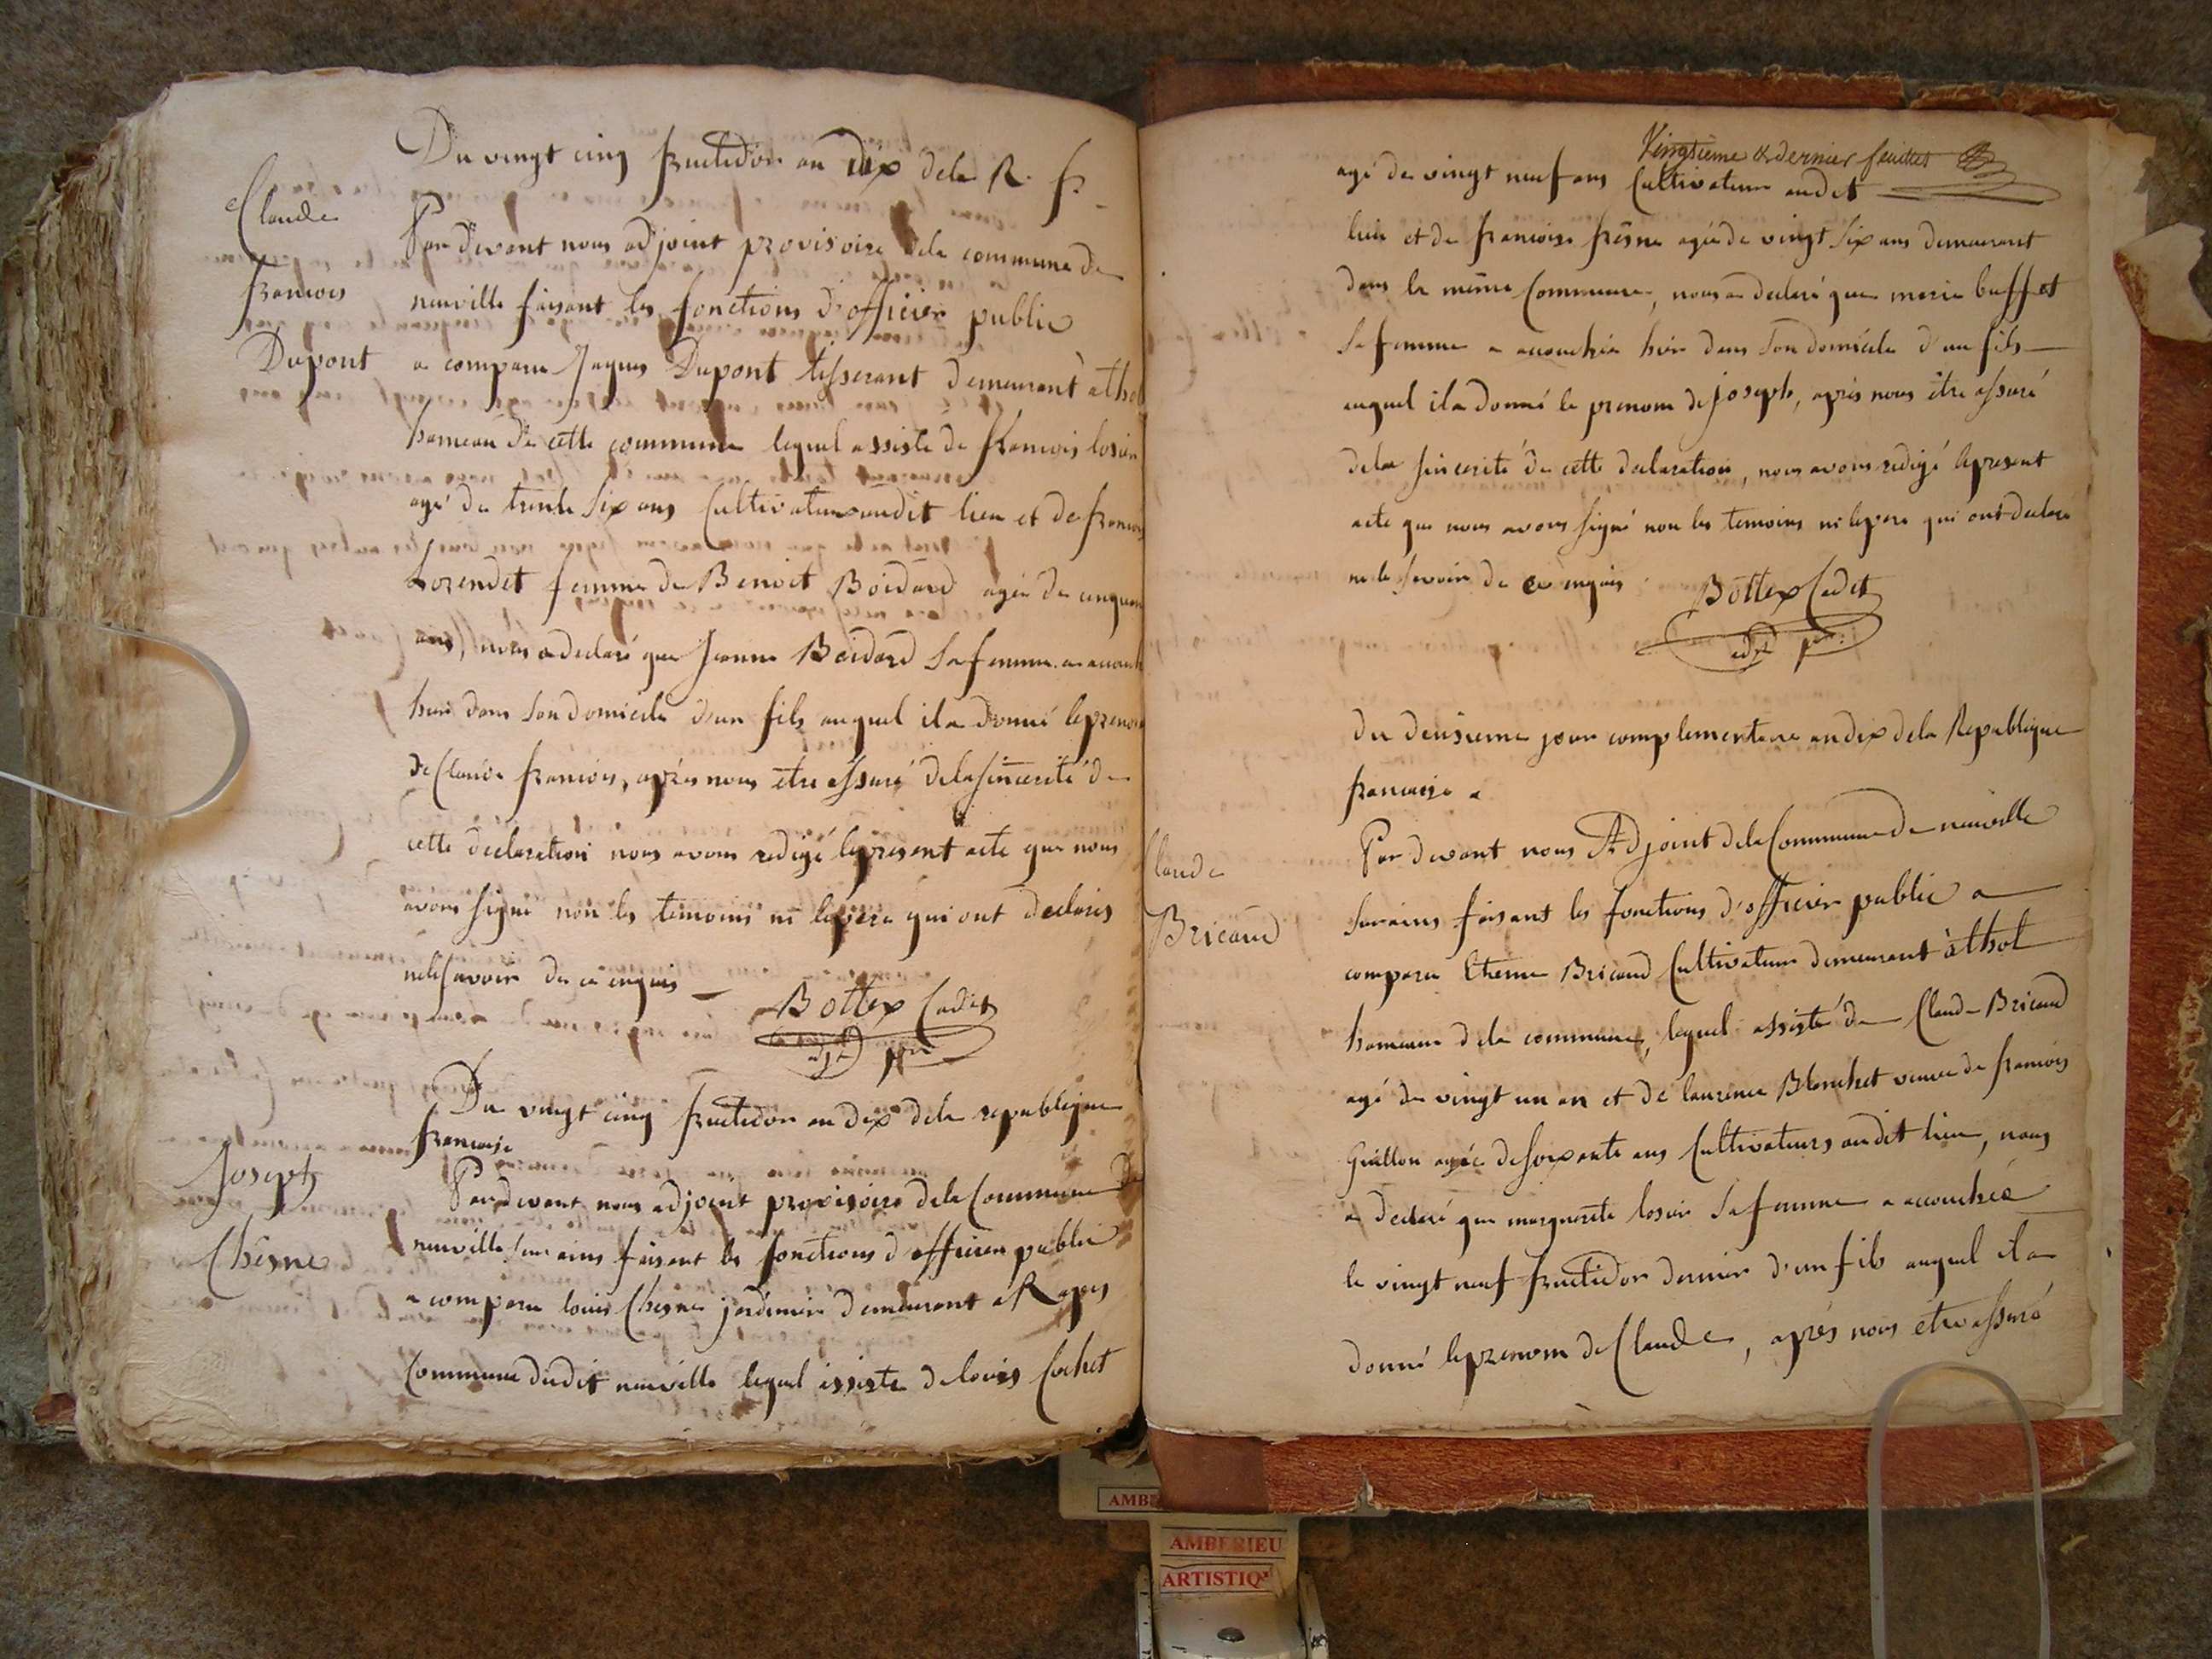 Du vingt cinq fructidor an Dix dela R. fr
Claude
francois
Dupont
Par devant nous adjoint provisoire dela commune de
neuville faisant les fonctions d'officier public
a comparu Jaques Dupont tisserant demeurant à thol
hameau de cette commune lequel assisté de francois losier
agé de trente six ans Cultivateur audit lieu et de francois
Lorendet femme de Benoit Boidard agée de cinquante
ans, nous a declaré que Jeanne Boidard sa femme a accouché
hier dans son domicile d'un fils auquel il a donné le prenom
de Claude francois, après nous etre assuré dela sincerité de
cette declaration nous avons redigé le present acte que nous
avons signé non les temoins ni le pere qui ont declarés
ne le savoir de ce enquis
Bottex Cadet
adjt pre
Du vingt cinq fructidor an dix dela republique
francaise
Joseph
Chêsne
Par devant nous adjoint provisoire dela Commune de
neuville sur ains faisant les fonctions d'officier public
a comparu louis Chesne jardinier demeurant a Rapes
Commune dudit neuville lequel assisté de louis Cochet
Vingtieme & dernier feuillet
agé de vingt neuf ans Cultivateur audit
lieu et de francoise frêsne agée de vingt six ans demeurant
dans la même Commune, nous a declaré que marie buffet
sa femme a accouchée hier dans son domicile d'un fils
auquel il a donné le prenom de joseph, après nous être assuré
dela sincerité de cette declaration, nous avons redigé le present
acte que nous avons signé non les temoins ni le pere qui ont declaré
ne le savoir de ce enquis
Bottex Cadet
adjt pre.
du deusieme jour complementaire an dix dela Republique
francaise
Claude
Bricaud
Par devant nous Adjoint dela Commune de neuville
sur ains faisant les fonctions d'officier public a
comparu Etiene Bricaud Cultivateur demeurant à thol
hameau dela commune, lequel assisté de Claude Bricaud
agé de vingt un an et de laurence Blanchet veuve de francois
Guillon agée de soixante ans Cultivateurs audit lieu, nous
a declaré que marguerite losier sa femme a accouchée
le vingt neuf fructidor dernier d'un fils auquel il a
donné le prenom de Claude, après nous etre assuré
AMBERIEU
ARTISTIQ